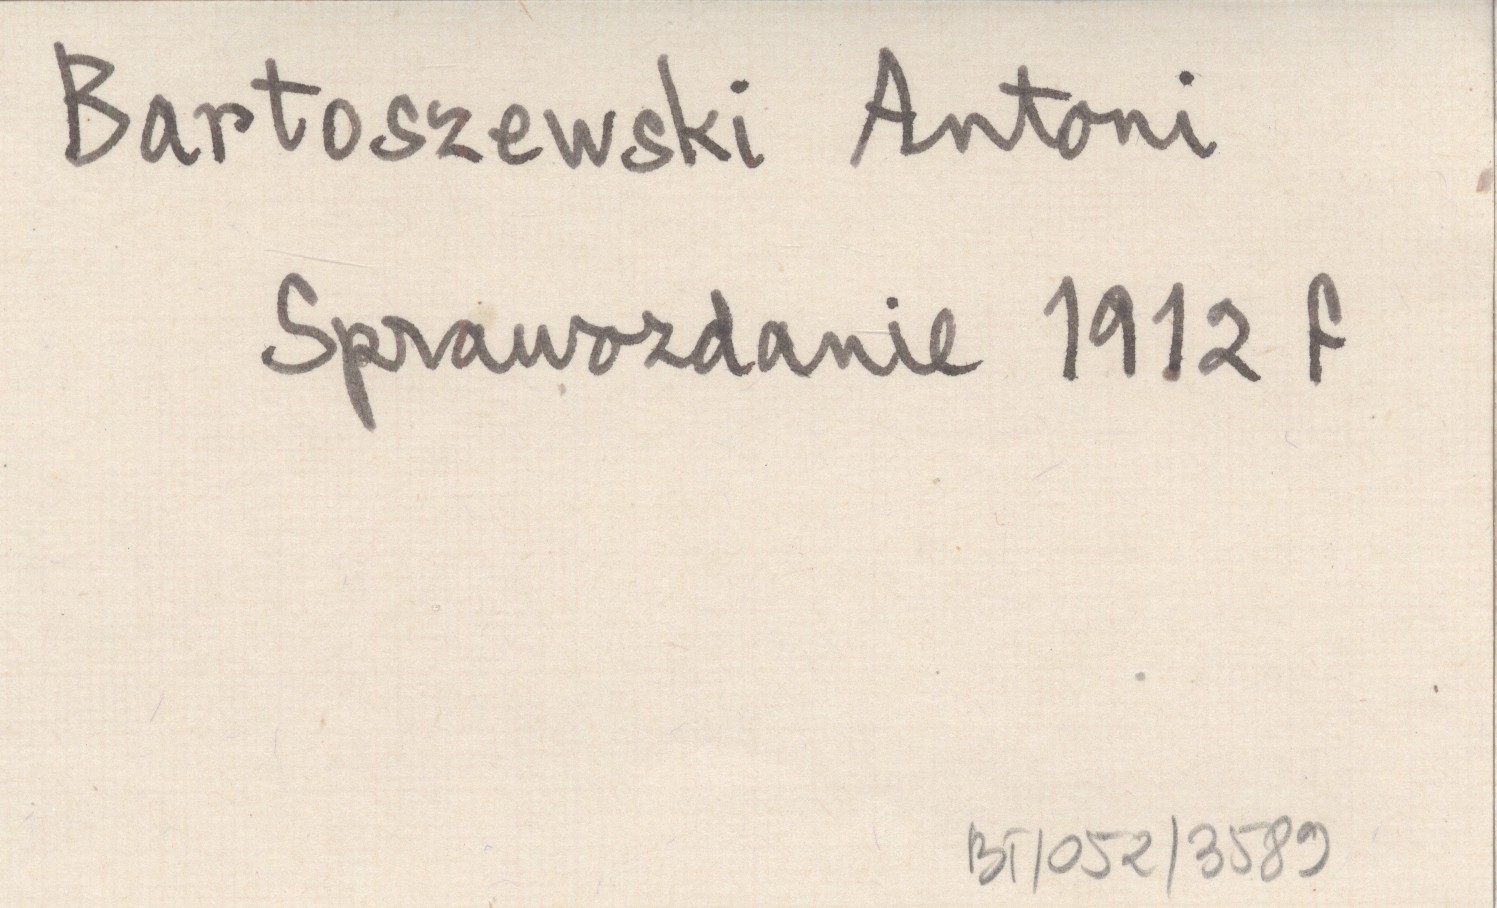 Bartoszewski Antoni
Sprawozdanie 1912 f
BT/052/3589